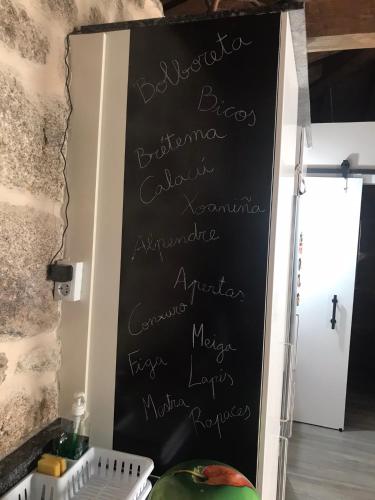 Bolboreta
Bicos
Brétema
Calacú
Xoaniña
Alpendre
Apertas
Conxuro
Meiga
Figa
Lapis
Mistra
Rapaces